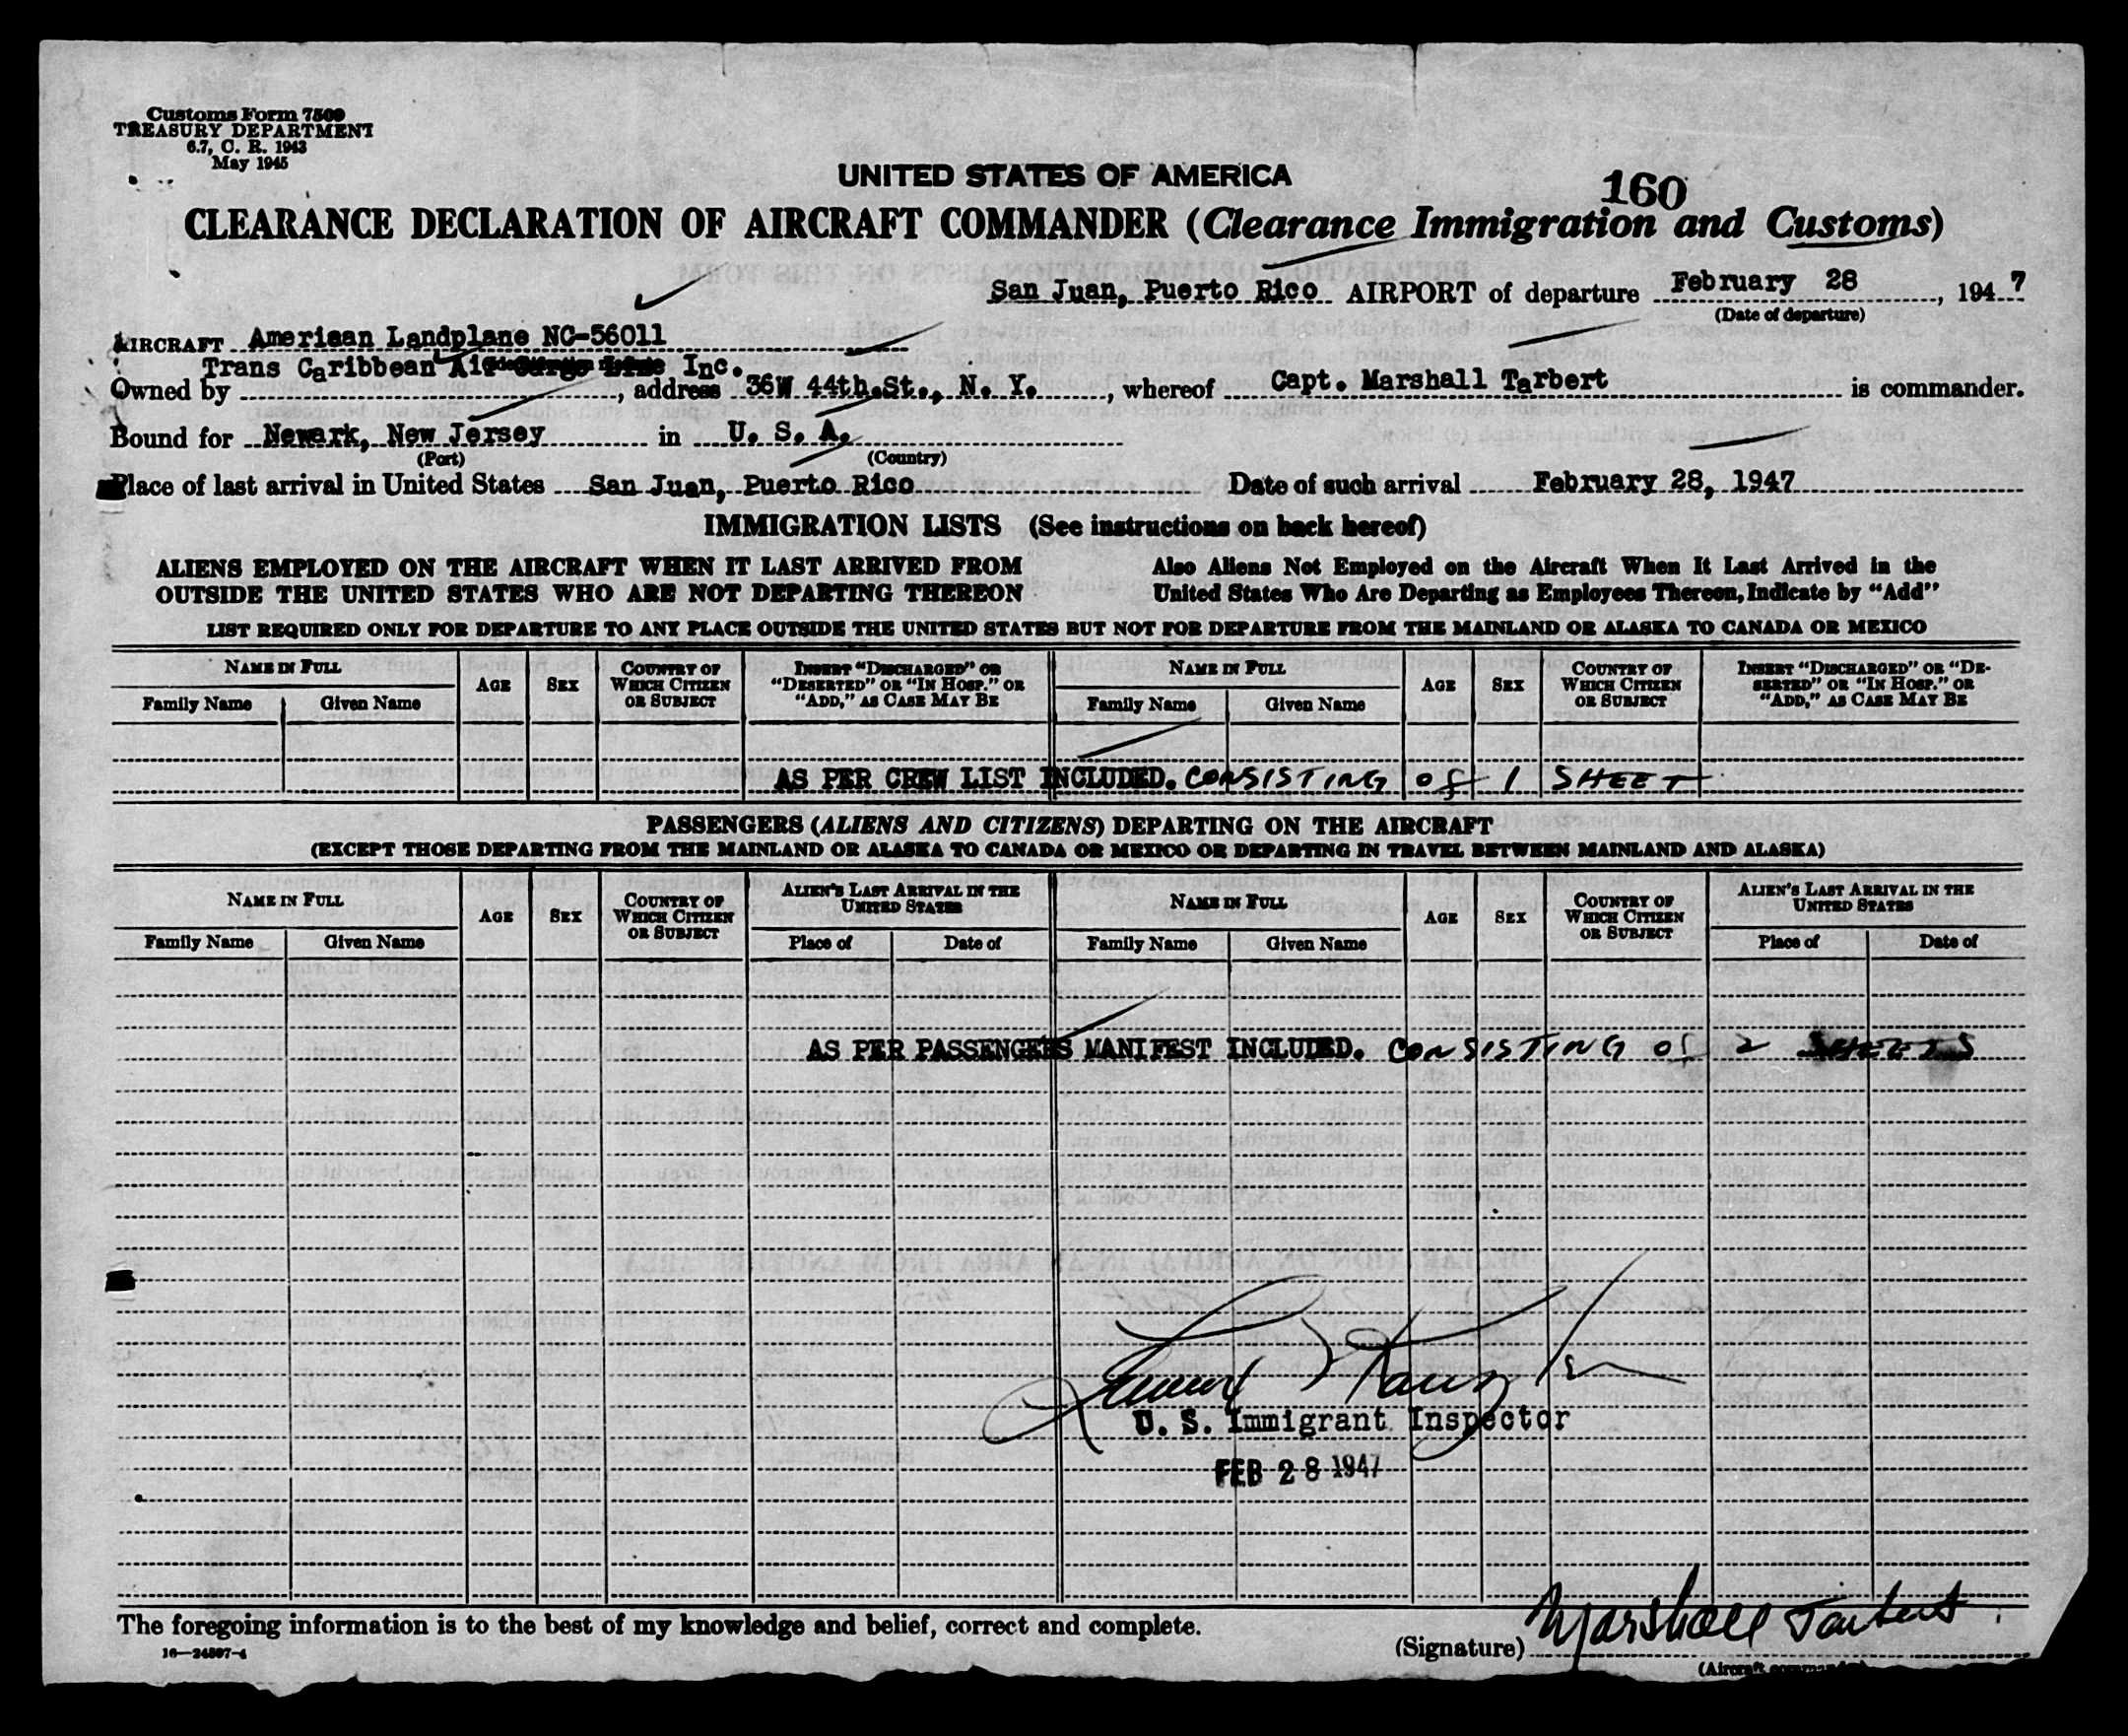 Customs Form 7509
TREASURY DEPARTMENT
6.7, C. R. 1943
May 1945
UNITED STATES OF AMERICA
160
CLEARANCE DECLARATION OF AIRCRAFT COMMANDER (Clearance Immigration and Customs)
San Juan, Puerto Rico AIRPORT of departure February 28, 1947
(Date of departure)
AIRCRAFT Ameriaan Landplane NC-56011
Trans Caribbean Air Cargo Line Inc.
Owned by , address 36W 44th.St., N. Y. , whereof Capt. Marshall Tarbert is commander.
Bound for Newark, New Jersey in U. S. A.
(Port) (Country)
Place of last arrival in United States San Juan, Puerto Rico Date of such arrival February 28, 1947
IMMIGRATION LISTS (See instructions on back hereof)
ALIENS EMPLOYED ON THE AIRCRAFT WHEN IT LAST ARRIVED FROM OUTSIDE THE UNITED STATES WHO ARE NOT DEPARTING THEREON
Also Aliens Not Employed on the Aircraft When It Last Arrived in the United States Who Are Departing as Employees Thereon, Indicate by "Add"
LIST REQUIRED ONLY FOR DEPARTURE TO ANY PLACE OUTSIDE THE UNITED STATES BUT NOT FOR DEPARTURE FROM THE MAINLAND OR ALASKA TO CANADA OR MEXICO
NAME IN FULL AGE SEX COUNTRY OF WHICH CITIZEN OR SUBJECT INSERT "DISCHARGED" OR "DESERTED" OR "IN HOSP." OR "ADD," AS CASE MAY BE NAME IN FULL AGE SEX COUNTRY OF WHICH CITIZEN OR SUBJECT INSERT "DISCHARGED" OR "DESERTED" OR "IN HOSP." OR "ADD," AS CASE MAY BE
Family Name Given Name Family Name Given Name
AS PER CREW LIST INCLUDED. CONSISTING of 1 SHEET
PASSENGERS (ALIENS AND CITIZENS) DEPARTING ON THE AIRCRAFT
(EXCEPT THOSE DEPARTING FROM THE MAINLAND OR ALASKA TO CANADA OR MEXICO OR DEPARTING IN TRAVEL BETWEEN MAINLAND AND ALASKA)
NAME IN FULL AGE SEX COUNTRY OF WHICH CITIZEN OR SUBJECT ALIEN'S LAST ARRIVAL IN THE UNITED STATES NAME IN FULL AGE SEX COUNTRY OF WHICH CITIZEN OR SUBJECT ALIEN'S LAST ARRIVAL IN THE UNITED STATES
Family Name Given Name Place of Date of Family Name Given Name Place of Date of
AS PER PASSENGERS MANIFEST INCLUDED. CONSISTING of 2 SHEETS
U. S. Immigrant Inspector
FEB 28 1947
The foregoing information is to the best of my knowledge and belief, correct and complete.
16—24597-4
(Signature) Marshall Tarbert
(Aircraft commander)